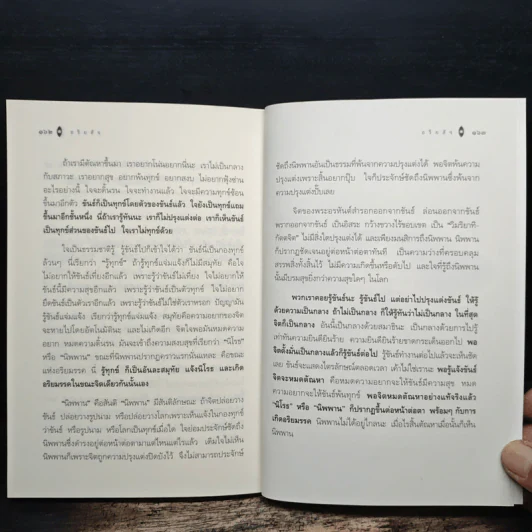 ๑๖๒
อริยสัจ
ถ้าเรามีตัณหาขึ้นมา เราอยากโน่นอยากนี่นะ เราไม่เป็นกลาง
กับสภาวะ เราอยากสุข อยากพ้นทุกข์ อยากสงบ ไม่อยากฟุ้งซ่าน
อะไรอย่างนี้ ใจจะดิ้นรน ใจจะทำงานแล้ว ใจจะมีความทุกข์ซ้อน
ขึ้นมาอีกตัว ขันธ์ก็เป็นทุกข์โดยตัวของขันธ์แล้ว ใจยังเป็นทุกข์แถม
ขึ้นมาอีกชั้นหนึ่ง นี่ถ้าเรารู้ทันนะ เราก็ไม่ปรุงแต่งต่อ เราก็เห็นขันธ์
เป็นทุกข์ส่วนของขันธ์ไป ใจเราไม่ทุกข์ด้วย
ใจเป็นธรรมชาติรู้ รู้ขันธ์ไปก็เข้าใจได้ว่า ขันธ์นี้เป็นกองทุกข์
ล้วนๆ นี่เรียกว่า “รู้ทุกข์” ถ้ารู้ทุกข์แจ่มแจ้งก็ไม่มีสมุทัย คือใจ
ไม่อยากให้ขันธ์เที่ยงอีกแล้ว เพราะรู้ว่าขันธ์ไม่เที่ยง ใจไม่อยากให้
ขันธ์นี้มีความสุขอีกแล้ว เพราะรู้ว่าขันธ์เป็นตัวทุกข์ ใจไม่อยาก
ยึดขันธ์เป็นตัวเราอีกแล้ว เพราะรู้ว่าขันธ์ไม่ใช่ตัวเราหรอก ปัญญามัน
รู้ขันธ์แจ่มแจ้ง เรียกว่ารู้ทุกข์แจ่มแจ้ง สมุทัยคือความอยากของจิต
จะหายไปโดยอัตโนมัติ และไม่เกิดอีก จิตใจพอมันหมดความ
อยาก หมดความดิ้นรน มันจะเข้าถึงความสงบสุขที่เรียกว่า “นิโรธ”
หรือ “นิพพาน” ขณะที่นิพพานปรากฏคราวแรกนั้นแหละ คือขณะ
แห่งอริยมรรค นี่ รู้ทุกข์ ก็เป็นอันละสมุทัย แจ้งนิโรธ และเกิด
อริยมรรคในขณะจิตเดียวกันนั้นเอง
“นิพพาน” คือสันติ “นิพพาน” มีสันติลักษณะ ถ้าจิตปล่อยวาง
ขันธ์ ปล่อยวางรูปนาม หรือปล่อยวางโลกเพราะเห็นแจ้งในกองทุกข์
ว่าขันธ์ หรือรูปนาม หรือโลกเป็นทุกข์เมื่อใด ใจย่อมประจักษ์ถึง
นิพพานซึ่งดำรงอยู่ต่อหน้าต่อตามาแต่ไหนแต่ไรแล้ว เดิมใจไม่เห็น
นิพพานก็เพราะจิตถูกความปรุงแต่งปิดบังไว้ จึงไม่สามารถประจักษ์
อริยสัจ
๑๖๓
ชัดถึงนิพพานอันเป็นธรรมที่พ้นจากความปรุงแต่งได้ พอจิตพ้นความ
ปรุงแต่งเพราะสิ้นอยากปุ๊บ ใจก็ประจักษ์ชัดถึงนิพพานซึ่งพ้นจาก
ความปรุงแต่งปั๊บเลย
จิตของพระอรหันต์สำรอกออกจากขันธ์ ล่อนออกจากขันธ์
พรากออกจากขันธ์ เป็นอิสระ กว้างขวางไร้ขอบเขต เป็น “ไม่
กัตตจิต” ไม่มีสิ่งใดปรุงแต่งได้ และเพียงมนสิการถึงนิพพาน นิพพาน
ก็ปรากฏชัดเจนอยู่ต่อหน้าต่อตาทันที เป็นความว่างที่ครอบคลุม
สรรพสิ่งทั้งสิ้นไว้ ไม่มีความเกิดขึ้นหรือดับไป และใจที่รู้ถึงนิพพาน
นั้นมีบรมสุขยิ่งกว่าความสุขใดๆ ในโลก
พวกเราคอยรู้ขันธ์นะ รู้ขันธ์ไป แต่อย่าไปปรุงแต่งขันธ์ ให้รู้
ด้วยความเป็นกลาง ถ้าไม่เป็นกลาง ก็ให้รู้ทันว่าไม่เป็นกลาง ในที่สุด
จิตก็เป็นกลาง อันนี้เป็นกลางด้วยสมาธินะ เป็นกลางด้วยการไปรู้
เท่าทันความยินดียินร้าย ความยินดียินร้ายขาดกระเด็นออกไป พอ
จิตตั้งมั่นเป็นกลางแล้วก็รู้ขันธ์ต่อไป รู้ขันธ์ทำงานต่อไปแล้วจะเห็นชัด
เลย ขันธ์จะแสดงไตรลักษณ์ตลอดเวลา เค้าไม่ใช่เรานะ พอรู้แจ้งขันธ์
จิตจะหมดตัณหา คือหมดความอยากจะให้ขันธ์มีความสุข หมด
ความอยากจะให้ขันธ์พ้นทุกข์ พอจิตหมดตัณหาอย่างแท้จริงแล้ว
“นิโรธ” หรือ “นิพพาน” ก็ปรากฏขึ้นต่อหน้าต่อตา พร้อมๆ กับการ
เกิดอริยมรรค นิพพานไม่ได้อยู่ไกลนะ เมื่อไรสิ้นตัณหาเมื่อนั้นก็เห็น
นิพพาน